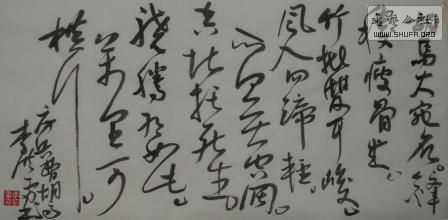 馬大宛名。鋒
稜瘦骨成。
竹批雙耳峻。
風入四蹄輕。
所向無空闊
真堪托死生。
驍騰有如此。
萬里可
橫行。
房兵曹胡馬
WWW.SHUFA.ORG